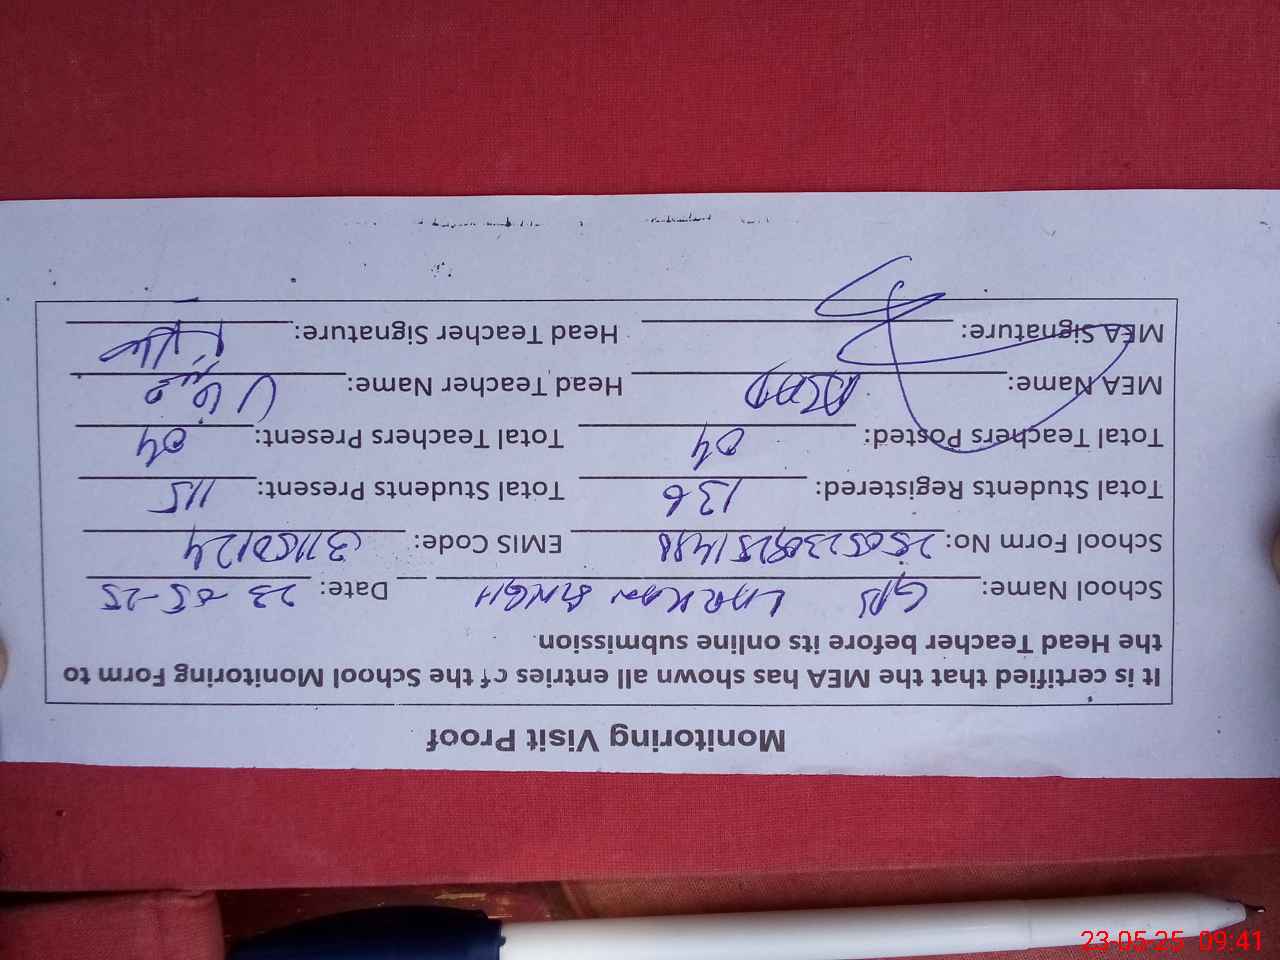 Monitoring Visit Proof
It is certified that the MEA has shown all entries of the School Monitoring Form to
the Head Teacher before its online submission.
School Name: GPS SINGH Date: 23-05-25
School Form No: EMIS Code: 31150124
Total Students Registered: 136 Total Students Present: 115
Total Teachers Posted: 04 Total Teachers Present: 04
MEA Name: ASAD Head Teacher Name:
MEA Signature: Head Teacher Signature:
23-05-25 09:41